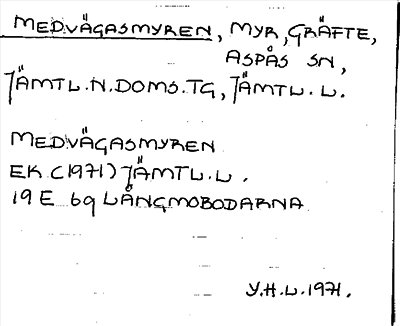 MEDVÄGASMYREN, MYR, GRÄFTE,
ASPÅS SN,
JÄMTL. N. DOMS. TG, JÄMTL. L.
MEDVÄGASMYREN
EK (1971) JÄMTL. L.
19 E 6g LÅNGMOBODARNA
Y.H.L. 1971.